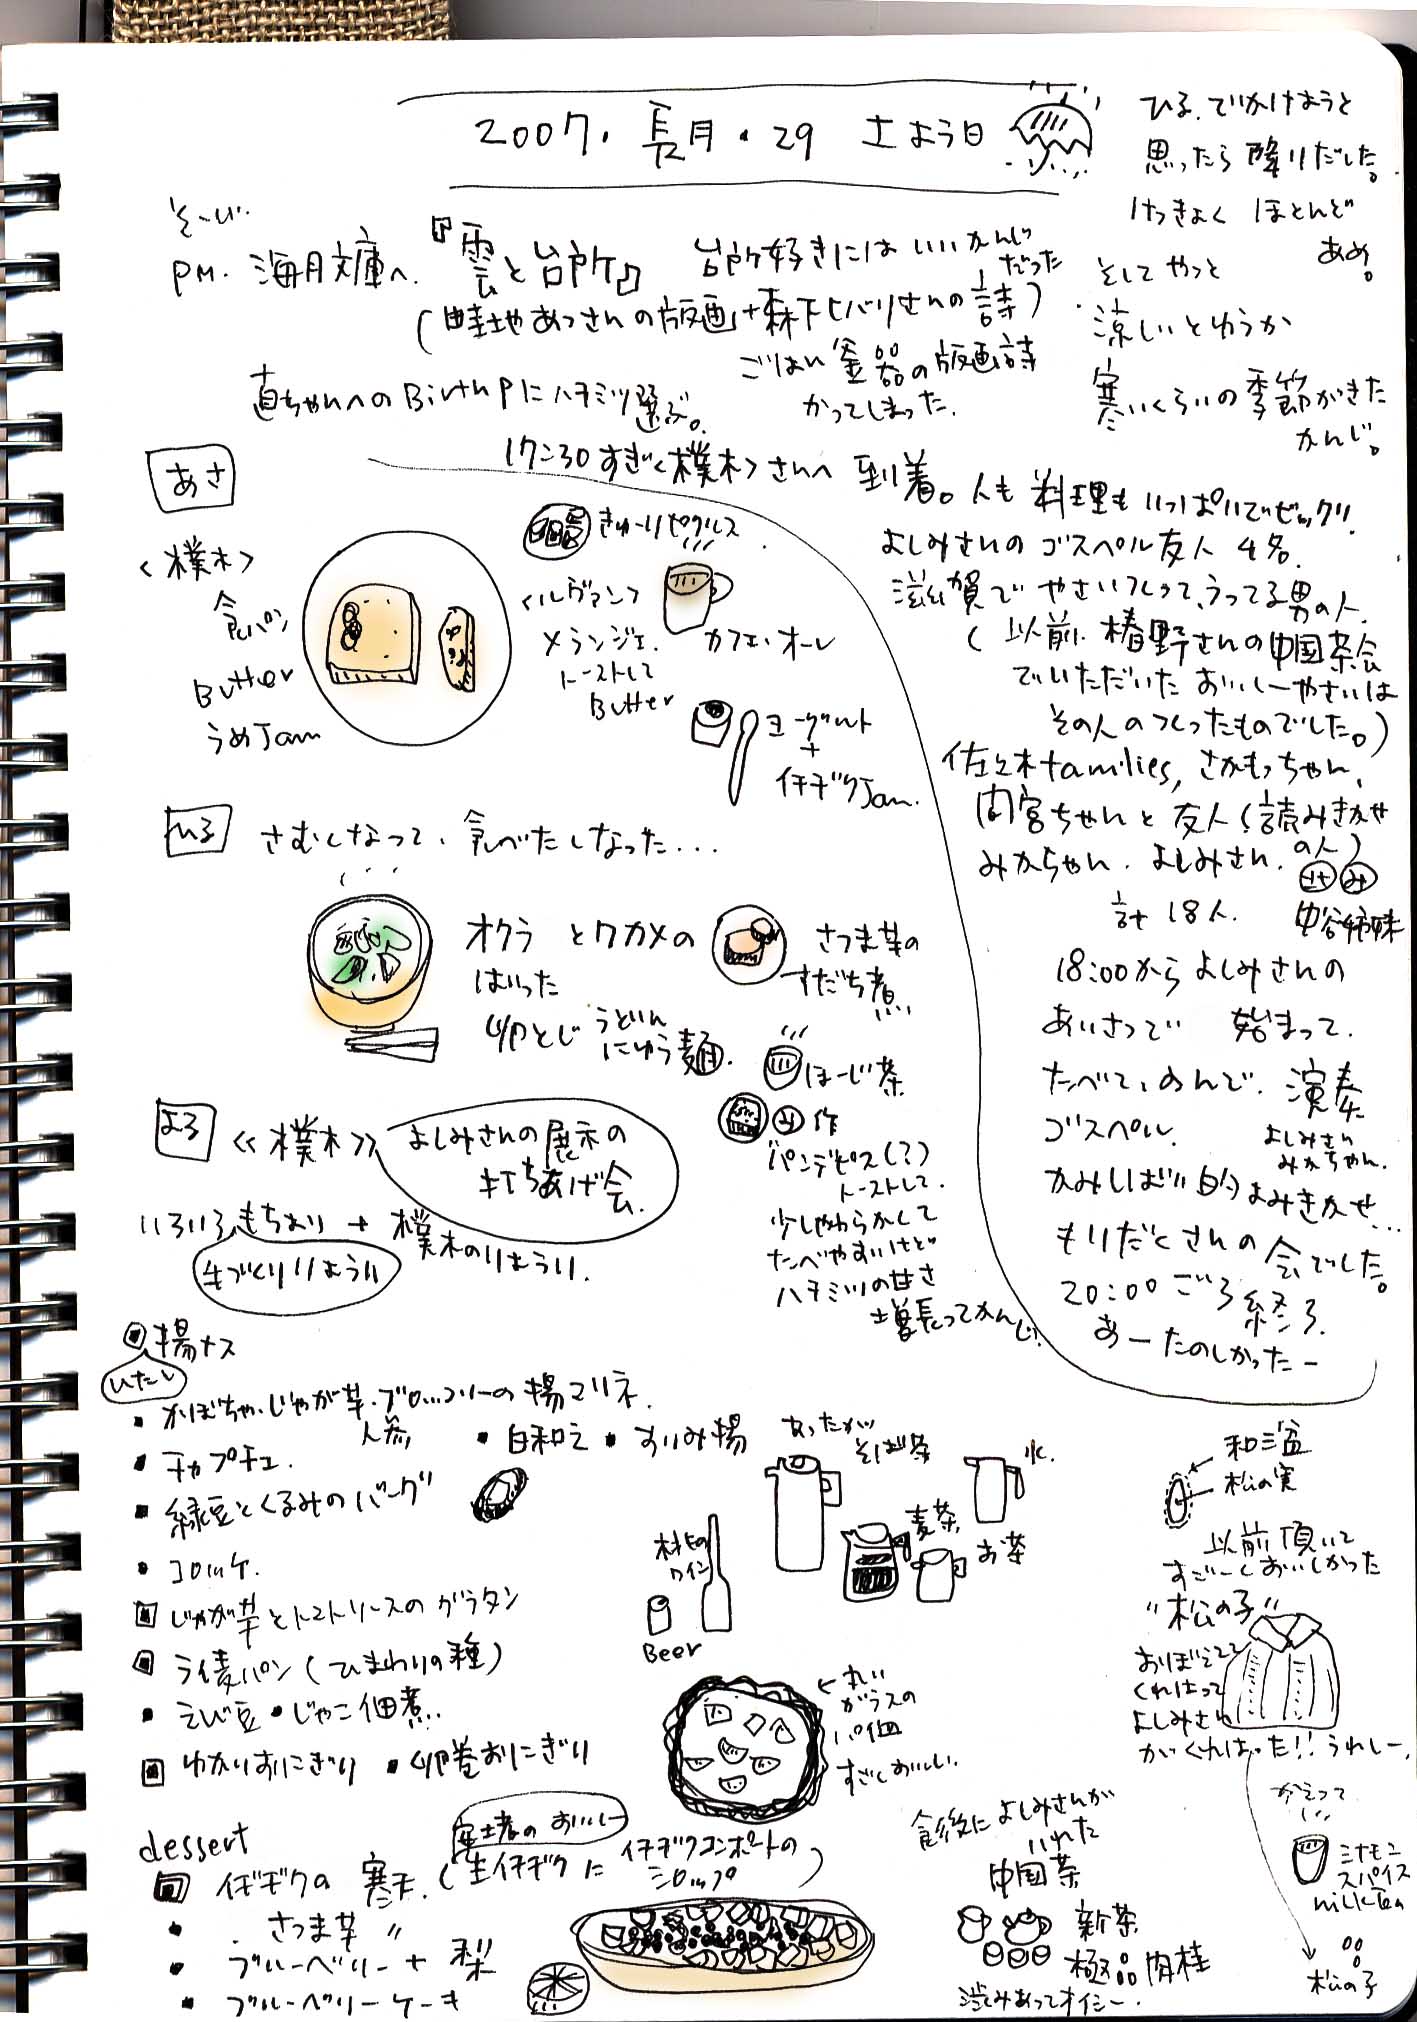 2007. 長月・29 土よう日
ひる、でかけようと
思ったら 降りだした。
けっきょく ほとんど
あめ。
そしてやっと
涼しいとゆうか
寒いくらいの季節がきた
かんじ。
そーじ。
PM. 海月文庫へ.『雲と台所』 台所好きには いいかんじ
だった
(畦地あつさんの版画+森下ヒバリさんの詩)
ごはん釜器の版画詩
かってしまった.
直ちゃんへのBirth Pにハチミツ選ぶ。
17:30すぎ<樸木>さんへ 到着。人も料理もいっぱいでビックリ!
よしみさんのゴスペル友人 4名.
滋賀でやさいつくって、うってる男の人.
(以前、椿野さんの中国茶会
でいただいた おいしーやさいは
その人のつくったものでした。)
佐々木families, さかもっちゃん、
間宮ちゃんと友人(読みきかせ
の人)
みかちゃん. よしみさん. さ み
計 18人. 中谷姉妹
18:00から よしみさんの
あいさつで 始まって.
たべて、のんで. 演奏
よしみさん
みかちゃん.
ゴスペル.
かみしばい的よみきかせ...
もりだくさんの会でした。
20:00ごろ終る.
あーたのしかったー
あさ
<樸木>
食パン
Butter
うめJam
きゅーりピクルス
<ルヴァン>
メランジェ.
トーストして
Butter
カフェ・オーレ
ヨーグルト
+
イチヂクJam.
ひる さむくなって、食べたくなった...
オクラ とワカメの
はいった
卵とじ うどん
にゅう麺.
さつま芋の
すだち煮
ほーじ茶
み作
パンデピス(?)
トーストして.
少しやわらかくて
たべやすいけど
ハチミツの甘さ
増長ってかんじ.
よる 《樸木》 よしみさんの展示の
打ちあげ会.
いろいろもちより + 樸木のりょうり.
手づくりりょうり
揚ナス
ひたし
・かぼちゃ・じゃが芋・ブロッコリーの揚マリネ.
人参
・白和え ・すりみ揚
・チャプチェ.
・緑豆とくるみのバーグ
・コロッケ.
じゃが芋とトマトソースのグラタン
ライ麦パン(ひまわりの種)
・えび豆 ・じゃこ佃煮..
ゆかりおにぎり ・卵巻おにぎり
あったかい
そば茶
水.
麦茶
お茶
ワイン
Beer
←丸い
ガラスの
パイ皿
すごくおいしい.
和三盆
松の実
以前頂いて
すごーくおいしかった
"松の子"
おぼえてて
くれはって
よしみさん
がくれはった!! うれしー.
かえって
ミナモニ
スパイス
milk Tea
松の子
dessert
イチヂクの寒天. (生イチヂクに イチヂクコンポートの
シロップ)
・さつま芋 〃
・ブルーベリー + 梨
・ブルーベリーケーキ
食後によしみさんが
いれた
中国茶
新茶
極品肉桂
渋みあってオイシー.